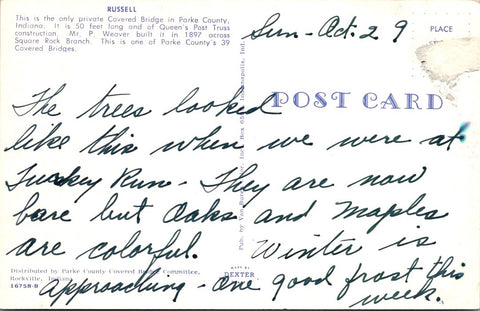 RUSSELL
This is the only private Covered Bridge in Parke County,
Indiana. It is 50 feet long and of Queen's Post Truss
construction. Mr. P. Weaver built it in 1897 across
Square Rock Branch. This is one of Parke County's 39
Covered Bridges.
Sun - Oct. 29
PLACE
POST CARD
The trees looked
like this when we were at
Turkey Run - They are now
bare but Oaks and Maples
are colorful. Winter is
approaching - one good frost this
week.
Pub. by Inc. Box Indianapolis, Ind.
Distributed by Parke County Covered Bridge Committee,
Rockville, Indiana
16758-B
MADE BY
DEXTER